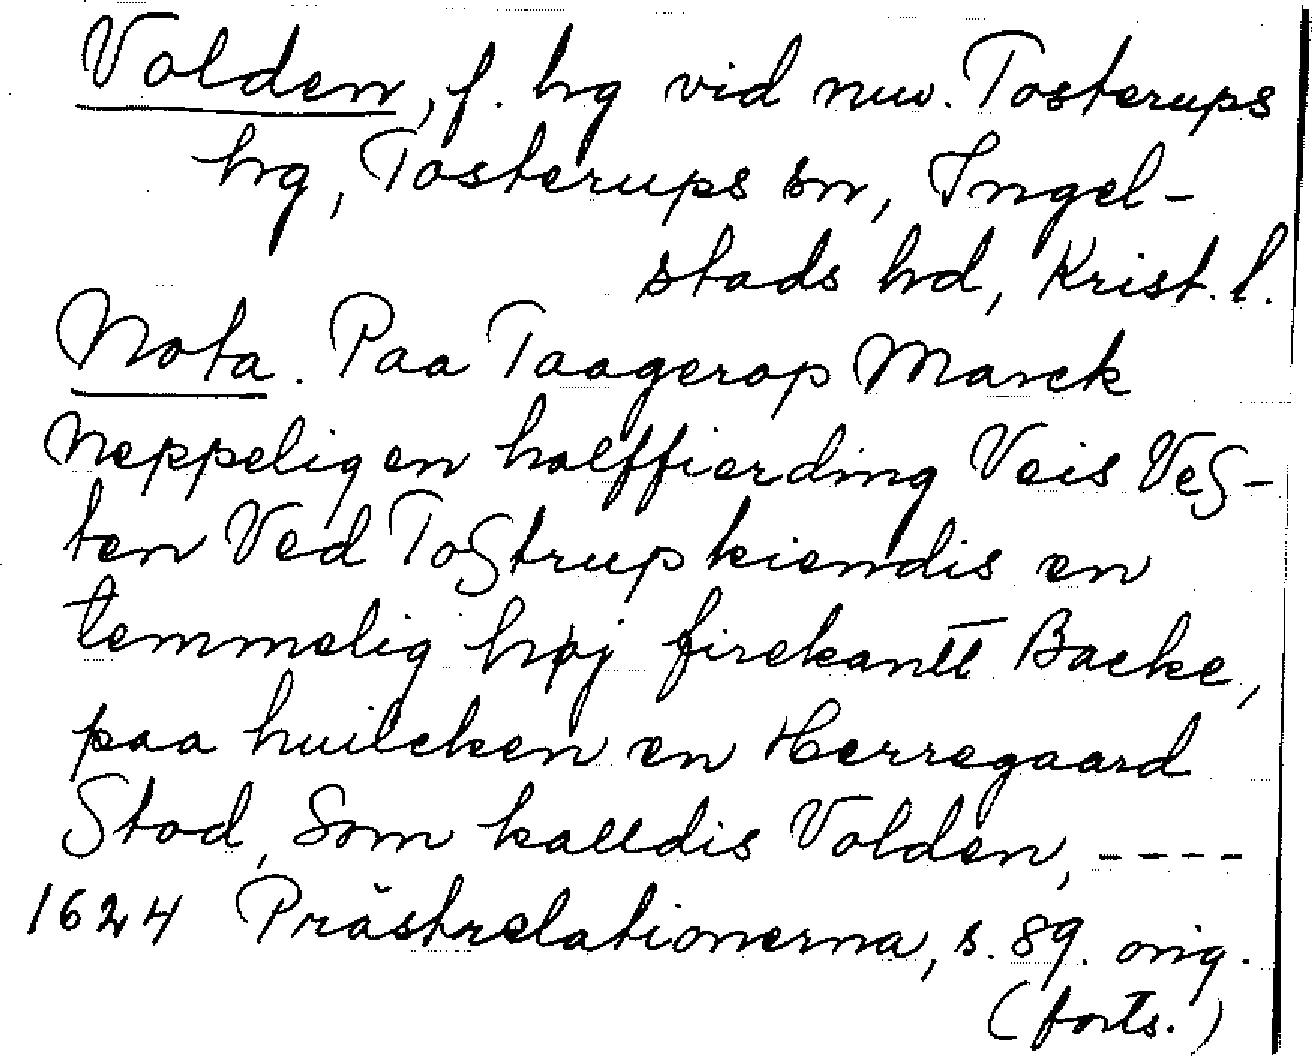 Volden, f. hg vid nuv. Tosterups
hg, Tosterups sn, Ingel-
stads hd, Krist. l.
Nota. Paa Taagerop Marck
Neppeligen halffierding Veis Veß-
ten Ved Toßtrup kiendis en
temmelig høj firekantt Backe,
paa huilcken en Herregaard
Stod, Som kalldis Volden, ----
1624 Prästrelationerna, s. 89. orig.
(forts.)